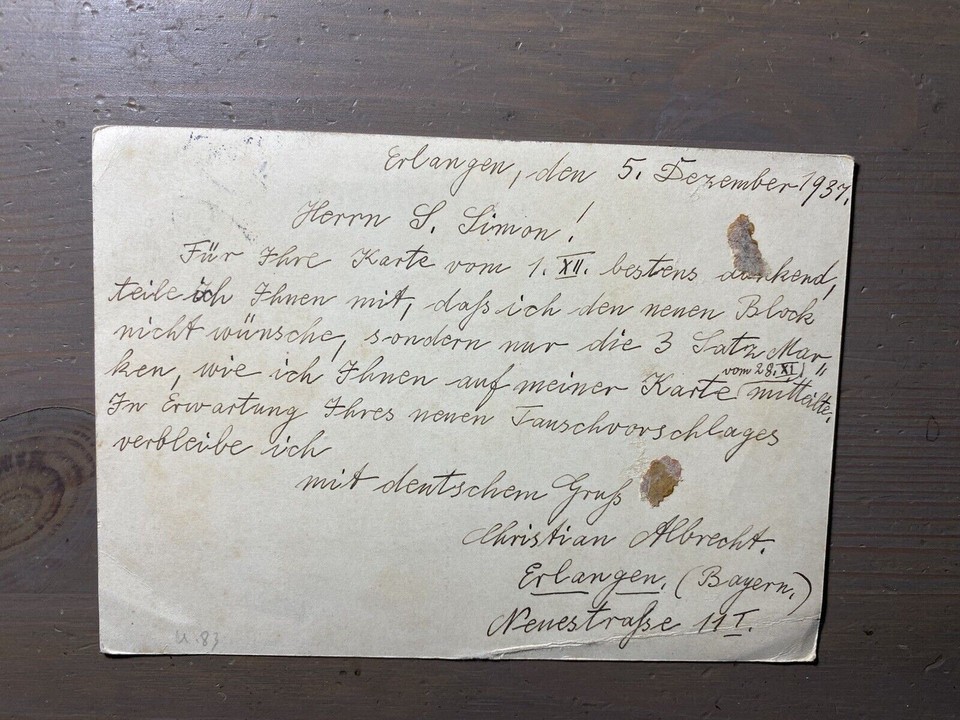 Erlangen, den 5. Dezember 1937.
Herrn S. Simon!
Für Ihre Karte vom 1. XII. bestens dankend,
teile ich Ihnen mit, daß ich den neuen Block
nicht wünsche, sondern nur die 3 Satz Mar"
vom 28. XI.
ken, wie ich Ihnen auf meiner Karte mitteilte.
In Erwartung Ihres neuen Tauschvorschlages
verbleibe ich
mit deutschem Gruß
Christian Albrecht.
Erlangen. (Bayern.)
Neuestraße 11 I.
U.83